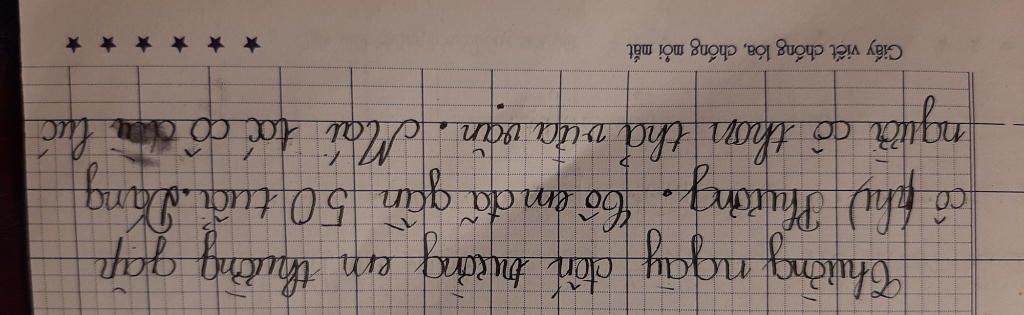 Thường ngày đến trường em thường gặp
cô Phường. Cô em đã gần 50 tuổi. Dáng
người cô thon thả vừa vặn. Mái tóc cô lúc
Giấy viết chống lóa, chống mỏi mắt